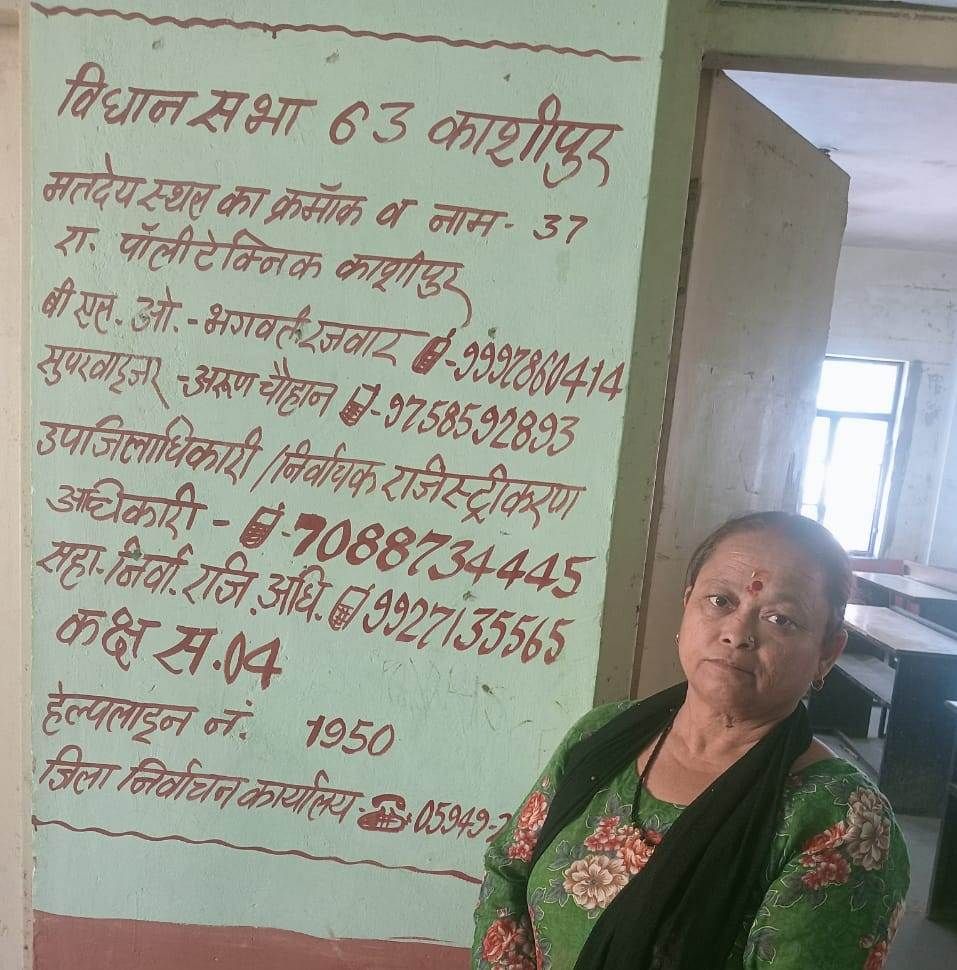 विधान सभा 63 काशीपुर
मतदेय स्थल का क्रमाँक व नाम - 37
रा. पॉलीटेक्निक काशीपुर
बी एल. ओ. - भगवती रजवार - 9997860414
सुपरवाइजर - अरूण चौहान - 9758592893
उपजिलाधिकारी / निर्वाचक रजिस्ट्रीकरण
अधिकारी - - 7088734445
सहा. निर्वा. रजि. अधि. 9927135565
कक्ष स. 04
हेल्पलाइन नं. 1950
जिला निर्वाचन कार्यालय - 05949-2